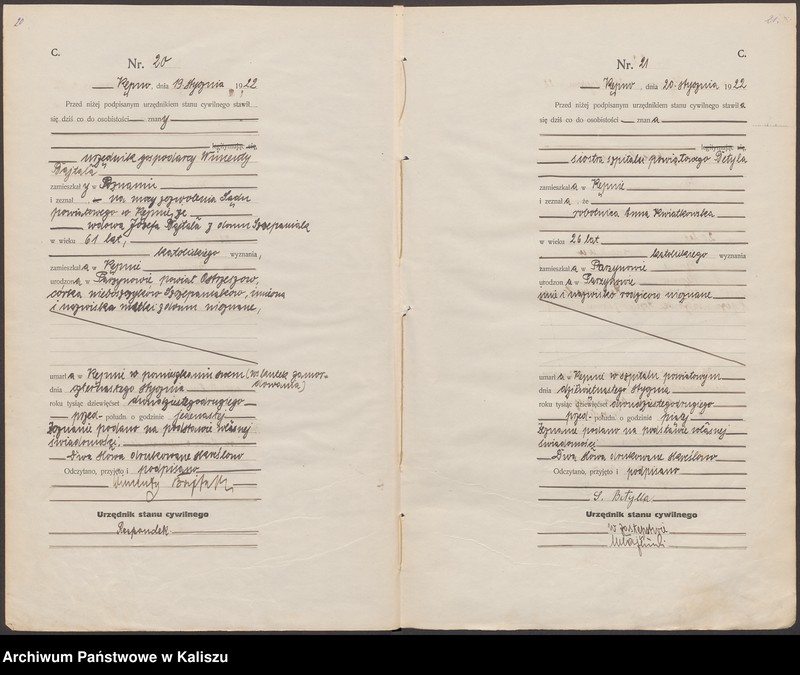 20
C.
Nr. 20
Kępno, dnia 19 stycznia 1922
Przed niżej podpisanym urzędnikiem stanu cywilnego stawił
się dziś co do osobistości znany
legitymując się
urzędnik gospodarczy Wincenty
zamieszkały w Poznaniu
i zeznał na mocy zezwolenia Sądu
powiatowego w Kępnie, że
wdowa Józefa z domu Szczepaniak
w wieku 61 lat,
katolickiego wyznania,
zamieszkała w Kępnie
urodzona w Parzynowie powiat Ostrzeszów,
córka nieboszczyków Szczepaniaków, imiona
i nazwiska matki z domu nieznane,
umarła w Kępnie w pomieszkaniu swem (wskutek zamordowania)
dnia stycznia
roku tysiąc dziewięćset dwudziestegodrugiego
przed połudn. o godzinie
Zeznanie podano na podstawie własnej
świadomości.
Dwa słowa drukowane skreślono
Odczytano, przyjęto i podpisano
Wincenty
Urzędnik stanu cywilnego
Respondek
21.
C.
Nr. 21
Kępno, dnia 20 stycznia 1922
Przed niżej podpisanym urzędnikiem stanu cywilnego stawiła
się dziś co do osobistości znana
legitymując się
siostra szpitala powiatowego Betylla
zamieszkała w Kępnie
i zeznała, że
robotnica Anna Kwiatkowska
w wieku 26 lat
katolickiego wyznania
zamieszkała w Parzynowie
urodzona w Parzynowie
imię i nazwisko rodziców nieznane
umarła w Kępnie w szpitalu powiatowym
dnia dziewiętnastego stycznia
roku tysiąc dziewięćset dwudziestegodrugiego
przed połudn. o godzinie piątej
Zeznanie podano na podstawie własnej
świadomości
Dwa słowa drukowane skreślono
Odczytano, przyjęto i podpisano
S. Betylla
Urzędnik stanu cywilnego
w zastępstwie
Archiwum Państwowe w Kaliszu